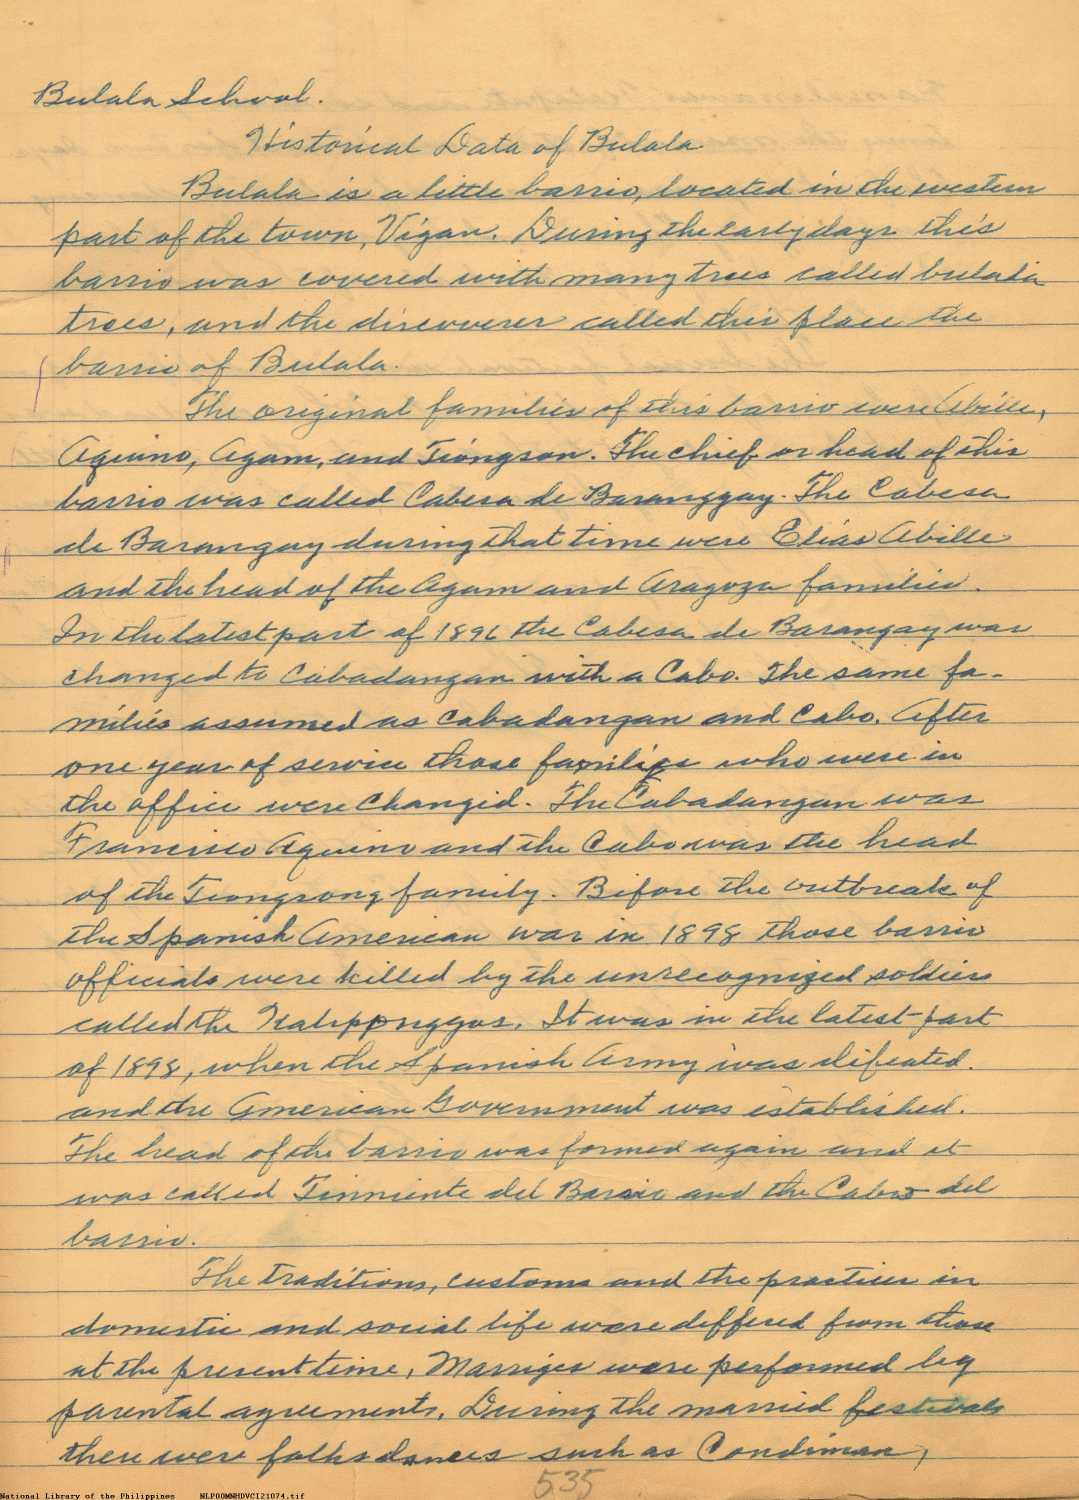 Bulala School.
Historical Data of Bulala
Bulala is a little barrio, located in the western
part of the town, Vigan. During the early days this
barrio was covered with many trees called bulala
trees, and the discoverer called this place the
barrio of Bulala.
The original families of this barrio were Abille,
Aquino, Agam, and Tiongson. The chief or head of this
barrio was called Cabesa de Baranggay. The Cabesa
de Barangay during that time were Elias Abille
and the head of the Agam and Aragoza families.
In the latest part of 1896 the Cabesa de Barangay was
changed to Cabadangan with a Cabo. The same fa-
milies assumed as Cabadangan and Cabo. After
one year of service those families who were in
the office were changed. The Cabadangan was
Francisco Aquino and the Cabo was the head
of the Tiongsong family. Before the outbreak of
the Spanish American war in 1898 those barrio
officials were killed by the unrecognized soldiers
called the
It was in the latest part
of 1898, when the Spanish Army was difeated.
and the American Government was established.
The head of the barrio was formed again and it
was called Tinniente del Barrio and the Cabo del
barrio.
The traditions, customs and the practices in
domestic and social life were deffered from those
at the present time. Marriges were performed by
parental agreements. During the married festivals
there were folks dances such as Condiman,
535
National Library of the Philippines NLPOOMNHDVCI21074.tif